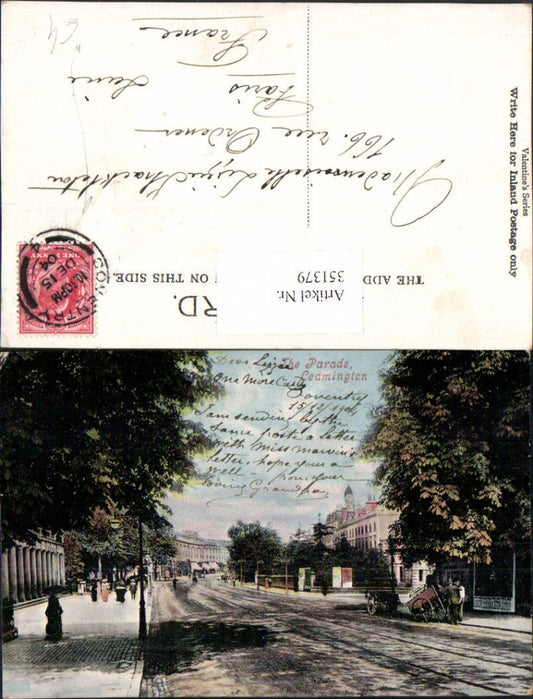 Valentine's Series
Write Here for Inland Postage only
THE ADD
ON THIS SIDE.
RD.
Artikel Nr.
351379
COVENTRY
10.30PM
DE 15
04
ONE PENNY
Mademoiselle Lizzie Shackleton
166. rue Ordener
Paris
France
64
The Parade,
Leamington
Dear Lizzie
One More Card
Coventry
15/12/1904
I am sending by the
Same poste a letter
with Miss Marvin's
letter, hope your a
well - from your
loving Grandpa